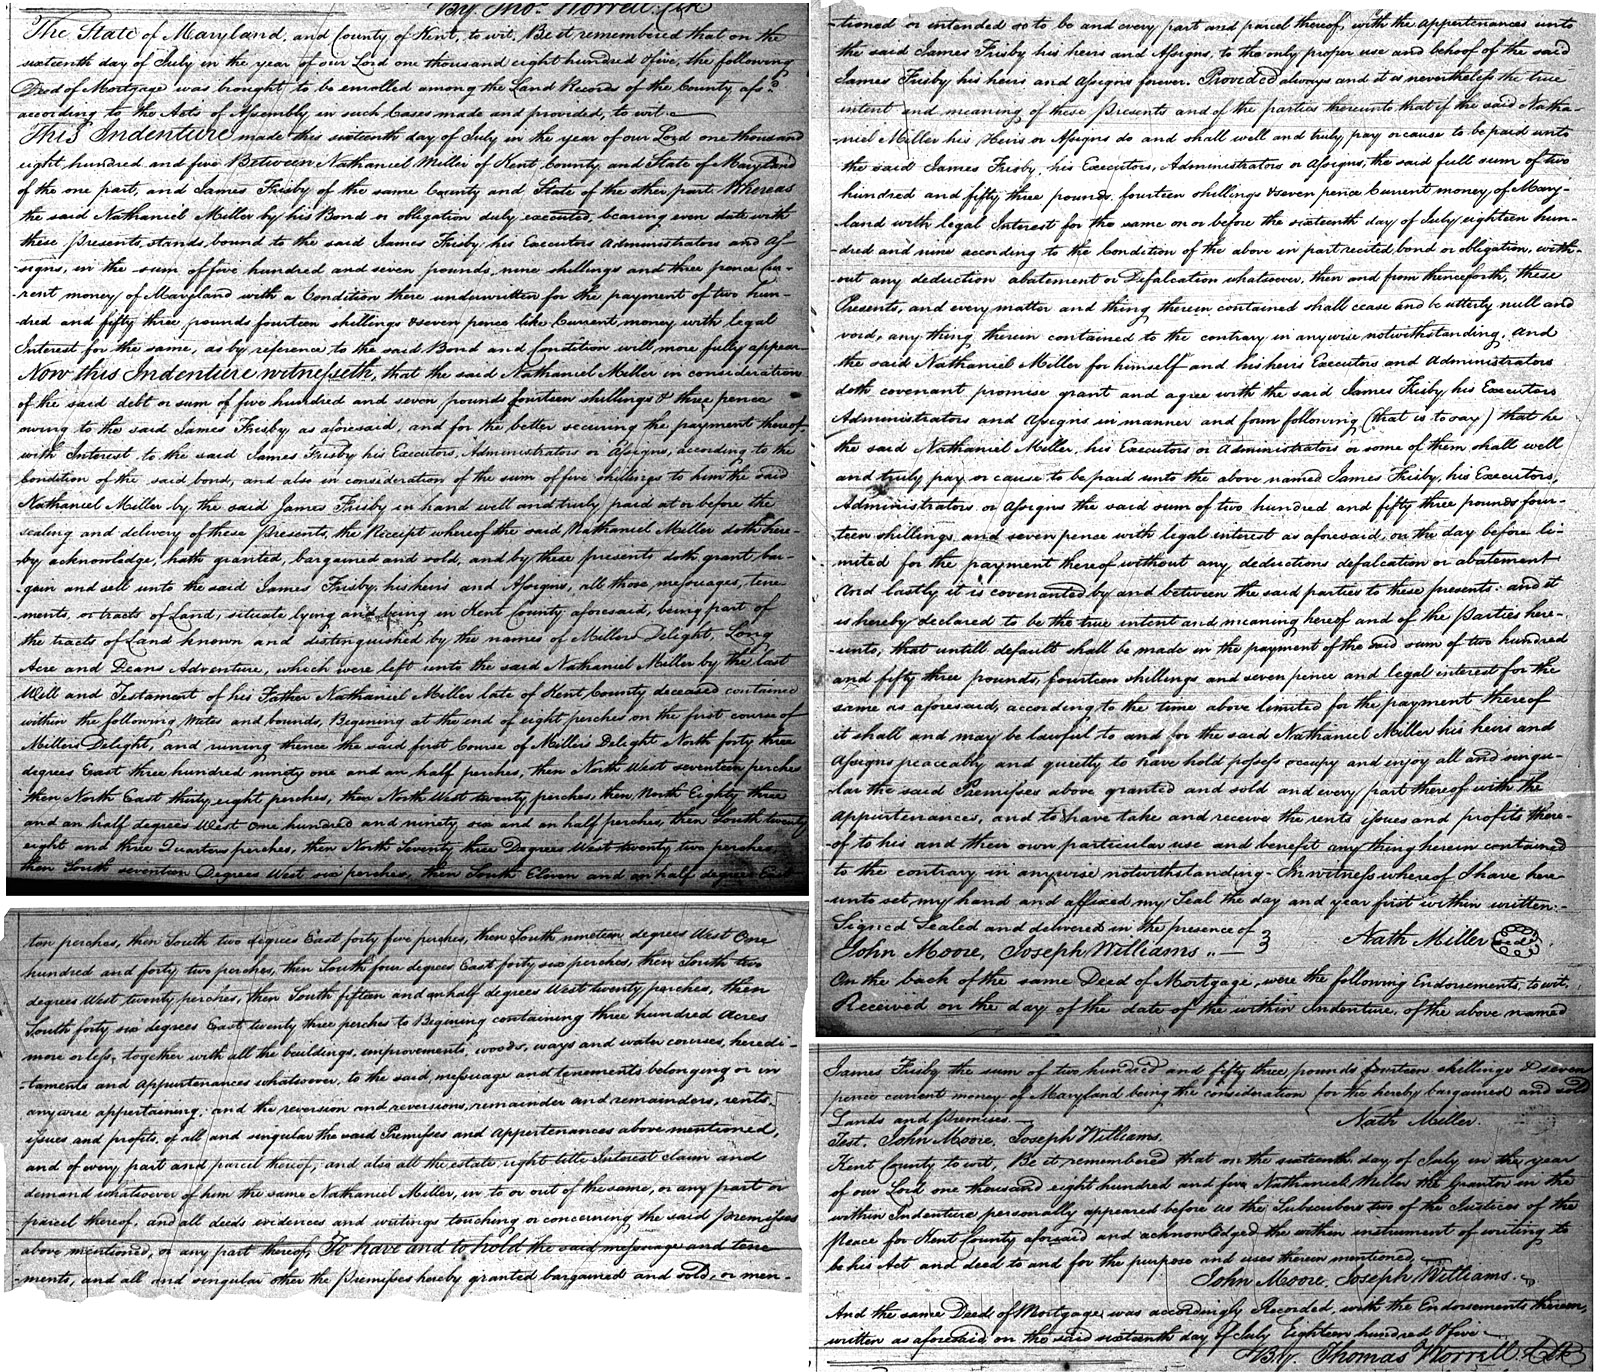 By Tho.s Worrell Clk
The State of Maryland, and County of Kent, to wit, Be it remembered that on the
sixteenth day of July in the year of our Lord one thousand eight hundred & five, the following
Deed of Mortgage was brought to be enrolled among the Land Records of the County afs.d
according to the Acts of Assembly in such Cases made and provided, to wit
This Indenture made this sixteenth day of July in the year of our Lord one thousand
eight hundred and five Between Nathaniel Miller of Kent County and State of Maryland
of the one part, and James Frisby of the same County and State of the other part. Whereas
the said Nathaniel Miller by his Bond or obligation duly executed, bearing even date with
these presents, stands bound to the said James Frisby, his Executors Administrators and As-
signs, in the sum of five hundred and seven pounds, nine shillings and three pence Cur-
-rent money of Maryland with a Condition there underwritten for the payment of two hun-
dred and fifty three pounds fourteen shillings & seven pence like Current money with legal
Interest for the same, as by reference to the said Bond and Condition will more fully appear
Now this Indenture witnesseth, that the said Nathaniel Miller in consideration
of the said debt or sum of five hundred and seven pounds fourteen shillings & three pence
owing to the said James Frisby as aforesaid, and for the better securing the payment thereof
with Interest, to the said James Frisby his Executors, Administrators or Assigns, according to the
Condition of the said bond, and also in consideration of the sum of five shillings to him the said
Nathaniel Miller by the said James Frisby in hand well and truly paid at or before the
sealing and delivery of these Presents, the Receipt whereof the said Nathaniel Miller doth here-
-by acknowledge, hath granted, bargained and sold, and by these presents doth grant, bar-
gain and sell unto the said James Frisby, his heirs and Assigns, all those messuages, tene
ments, or tracts of Land, situate lying and being in Kent County aforesaid, being part of
the tracts of Land known and distinguished by the names of Millers Delight, Long
Acre and Deans Adventure, which were left unto the said Nathaniel Miller by the last
Will and Testament of his Father Nathaniel Miller late of Kent County deceased contained
within the following metes and bounds, Begining at the end of eight perches on the first course of
Millers Delight, and runing thence the said first Course of Millers Delight North forty three
degrees East three hundred ninety one and an half perches, then North West seventeen perches
then North East thirty eight perches, then North West twenty perches, then North Eighty three
and an half degrees West One hundred and ninety six and an half perches, then South twenty
eight and three Quarters perches, then North Seventy three Degrees West twenty two perches
then South seventeen Degrees West six perches, then South Eleven and an half degrees East
ten perches, then South two degrees East forty five perches, then South nineteen degrees West One
hundred and forty two perches, then South four degrees East forty six perches, then South two
degrees West twenty perches, then South fifteen and an half degrees West twenty perches, then
South forty six degrees East twenty three perches to Begining containing three hundred Acres
more or less, together with all the buildings, improvements, woods, ways and water courses, heredi-
-taments and Appurtenances whatsoever, to the said messuage and tenements belonging or in
anywise appertaining; and the reversion and reversions, remainder and remainders, rents,
issues and profits, of all and singular the said Premisses and Appertenances above mentioned,
and of every part and parcel thereof; and also all the estate, right title Interest claim and
demand whatsoever of him the same Nathaniel Miller, in to or out of the same, or any part or
parcel thereof, and all deeds evidences and writings touching or concerning the said premisses
above mentioned, or any part thereof, To have and to hold the said messuage and tene
ments, and all and singular other the Premisses hereby granted bargained and sold, or men-
-tioned or intended so to be and every part and parcel thereof, with the appertenances unto
the said James Frisby his heirs and Assigns, to the only proper use and behoof of the said
James Frisby his heirs and Assigns forever. Provided always and it is nevertheless the true
intent and meaning of these Presents and of the parties thereunto that if the said Natha-
niel Miller his Heirs or Assigns do and shall well and truly pay or cause to be paid unto
the said James Frisby, his Executors, Administrators or Assigns, the said full sum of two
hundred and fifty three pounds fourteen shillings & seven pence Current money of Mary-
land with legal Interest for the same on or before the sixteenth day of July eighteen hun-
dred and nine according to the Condition of the above in part recited bond or obligation, with-
-out any deduction abatement or Defalcation whatsoever, then and from thenceforth, these
Presents, and every matter and thing therein contained shall cease and be utterly null and
void, any thing therein contained to the contrary in anywise notwithstanding. And
the said Nathaniel Miller for himself and his heirs Executors and Administrators
doth covenant promise grant and agree with the said James Frisby his Executors
Administrators and Assigns in manner and form following (that is to say) that he
the said Nathaniel Miller, his Executors or Administrators or some of them shall well
and truly pay or cause to be paid unto the above named James Frisby, his Executors,
Administrators or Assigns the said sum of two hundred and fifty three pounds four-
teen shillings and seven pence with legal interest as aforesaid, on the day before li-
mited for the payment thereof without any deductions defalcation or abatement
And lastly it is covenanted by and between the said parties to these presents. and it
is hereby declared to be the true intent and meaning hereof and of the Parties here-
-unto, that untill default shall be made in the payment of the said sum of two hundred
and fifty three pounds, fourteen shillings and seven pence and legal interest for the
same as aforesaid, according to the time above limited for the payment thereof
it shall and may be lawful to and for the said Nathaniel Miller his heirs and
Assigns peaceably and quietly to have hold possess occupy and enjoy all and singu-
lar the said Premisses above granted and sold and every part thereof with the
appurtenances, and to have take and receive the rents issues and profits there-
-of to his and their own particular use and benefit any thing herein contained
to the contrary in anywise notwithstanding - In witness whereof I have here
unto set my hand and affixed my Seal the day and year first within written:-
Signed Sealed and delivered in the presence of
John Moore, Joseph Williams
Nath Miller Seal
On the back of the same Deed of Mortgage, were the following Endorsements, to wit,
Received on the day of the date of the within Indenture, of the above named
James Frisby the sum of two hundred and fifty three pounds fourteen shillings & seven
pence current money of Maryland being the consideration for the hereby bargained and sold
Lands and premises.
Nath Miller.
Test. John Moore, Joseph Williams.
Kent County to wit, Be it remembered that on the sixteenth day of July in the year
of our Lord one thousand eight hundred and five Nathaniel Miller the Grantor in the
within Indenture personally appeared before us the Subscribers two of the Justices of the
Peace for Kent County aforesaid and acknowledged the within instrument of writing to
be his Act and deed to and for the purpose and uses therein mentioned
John Moore, Joseph Williams.
And the same Deed of Mortgage was accordingly Recorded, with the Endorsements thereon,
written as aforesaid on the said sixteenth day of July Eighteen hundred & five
By. Thomas Worrell Clk